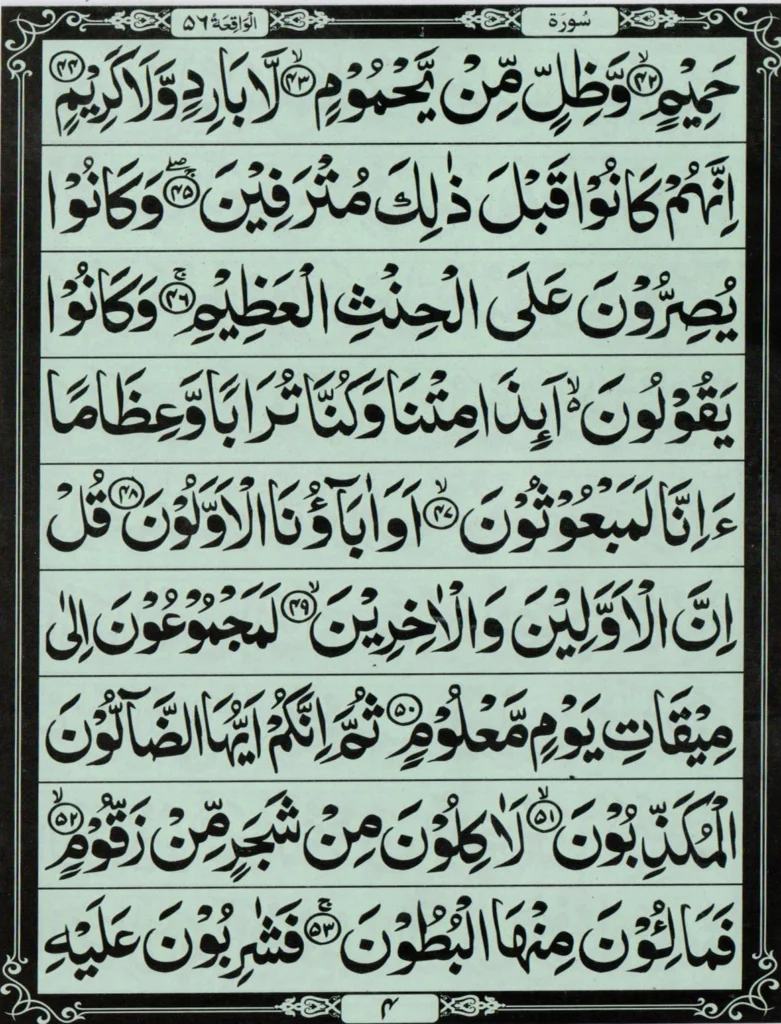 سُورَة الْوَاقِعَة ٥٦
حَمِيْمٍ ۙ﴿۴۲﴾ وَّظِلٍّ مِّنْ يَّحْمُوْمٍ ۙ﴿۴۳﴾ لَّا بَارِدٍ وَّلَا كَرِيْمٍ ﴿۴۴﴾
اِنَّهُمْ كَانُوْا قَبْلَ ذٰلِكَ مُتْرَفِيْنَ ۚۖ﴿۴۵﴾ وَكَانُوْا
يُصِرُّوْنَ عَلَى الْحِنْثِ الْعَظِيْمِ ۚ﴿۴۶﴾ وَكَانُوْا
يَقُوْلُوْنَ ۙ۬ اَىِٕذَا مِتْنَا وَكُنَّا تُرَابًا وَّعِظَامًا
ءَاِنَّا لَمَبْعُوْثُوْنَ ۙ﴿۴۷﴾ اَوَاٰبَآؤُنَا الْاَوَّلُوْنَ ﴿۴۸﴾ قُلْ
اِنَّ الْاَوَّلِيْنَ وَالْاٰخِرِيْنَ ۙ﴿۴۹﴾ لَمَجْمُوْعُوْنَ اِلٰى
مِيْقَاتِ يَوْمٍ مَّعْلُوْمٍ ﴿۵۰﴾ ثُمَّ اِنَّكُمْ اَيُّهَا الضَّآلُّوْنَ
الْمُكَذِّبُوْنَ ۙ﴿۵۱﴾ لَاٰكِلُوْنَ مِنْ شَجَرٍ مِّنْ زَقُّوْمٍ ۙ﴿۵۲﴾
فَمَالِـُٔوْنَ مِنْهَا الْبُطُوْنَ ۚ﴿۵۳﴾ فَشٰرِبُوْنَ عَلَيْهِ
۴